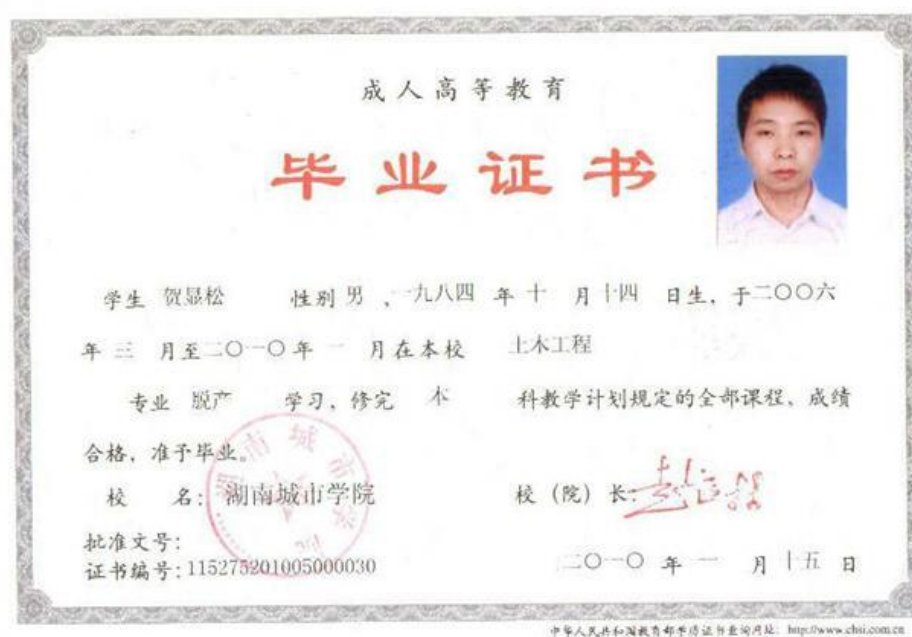 成人高等教育
毕业证书
学生 贺显松 性别 男 、一九八四 年 十 月 十四 日生，于二〇〇六
年 三 月至二〇一〇年 一 月在本校 土木工程
专业 脱产 学习，修完 本 科教学计划规定的全部课程、成绩
合格，准予毕业。
校 名：湖南城市学院 校（院）长：
批准文号：
证书编号：115275201005000030 二〇一〇 年 一 月 十五 日
中华人民共和国教育部学历证书查询网址：http://www.chsi.com.cn